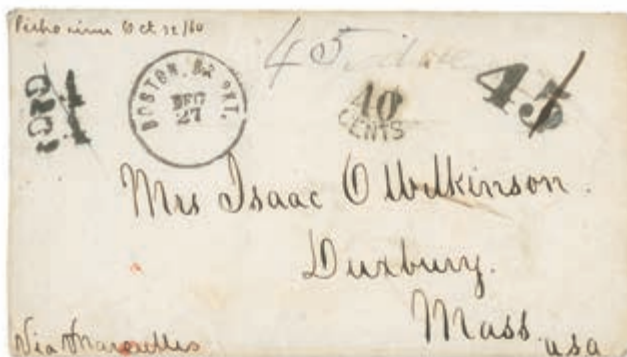 Peiho river Oct 12/60
45 due
BOSTON. BR. PKT.
DEC
27
10
CENTS
45
Mrs Isaac O Wilkinson.
Duxbury.
Mass
usa
Via Marseilles